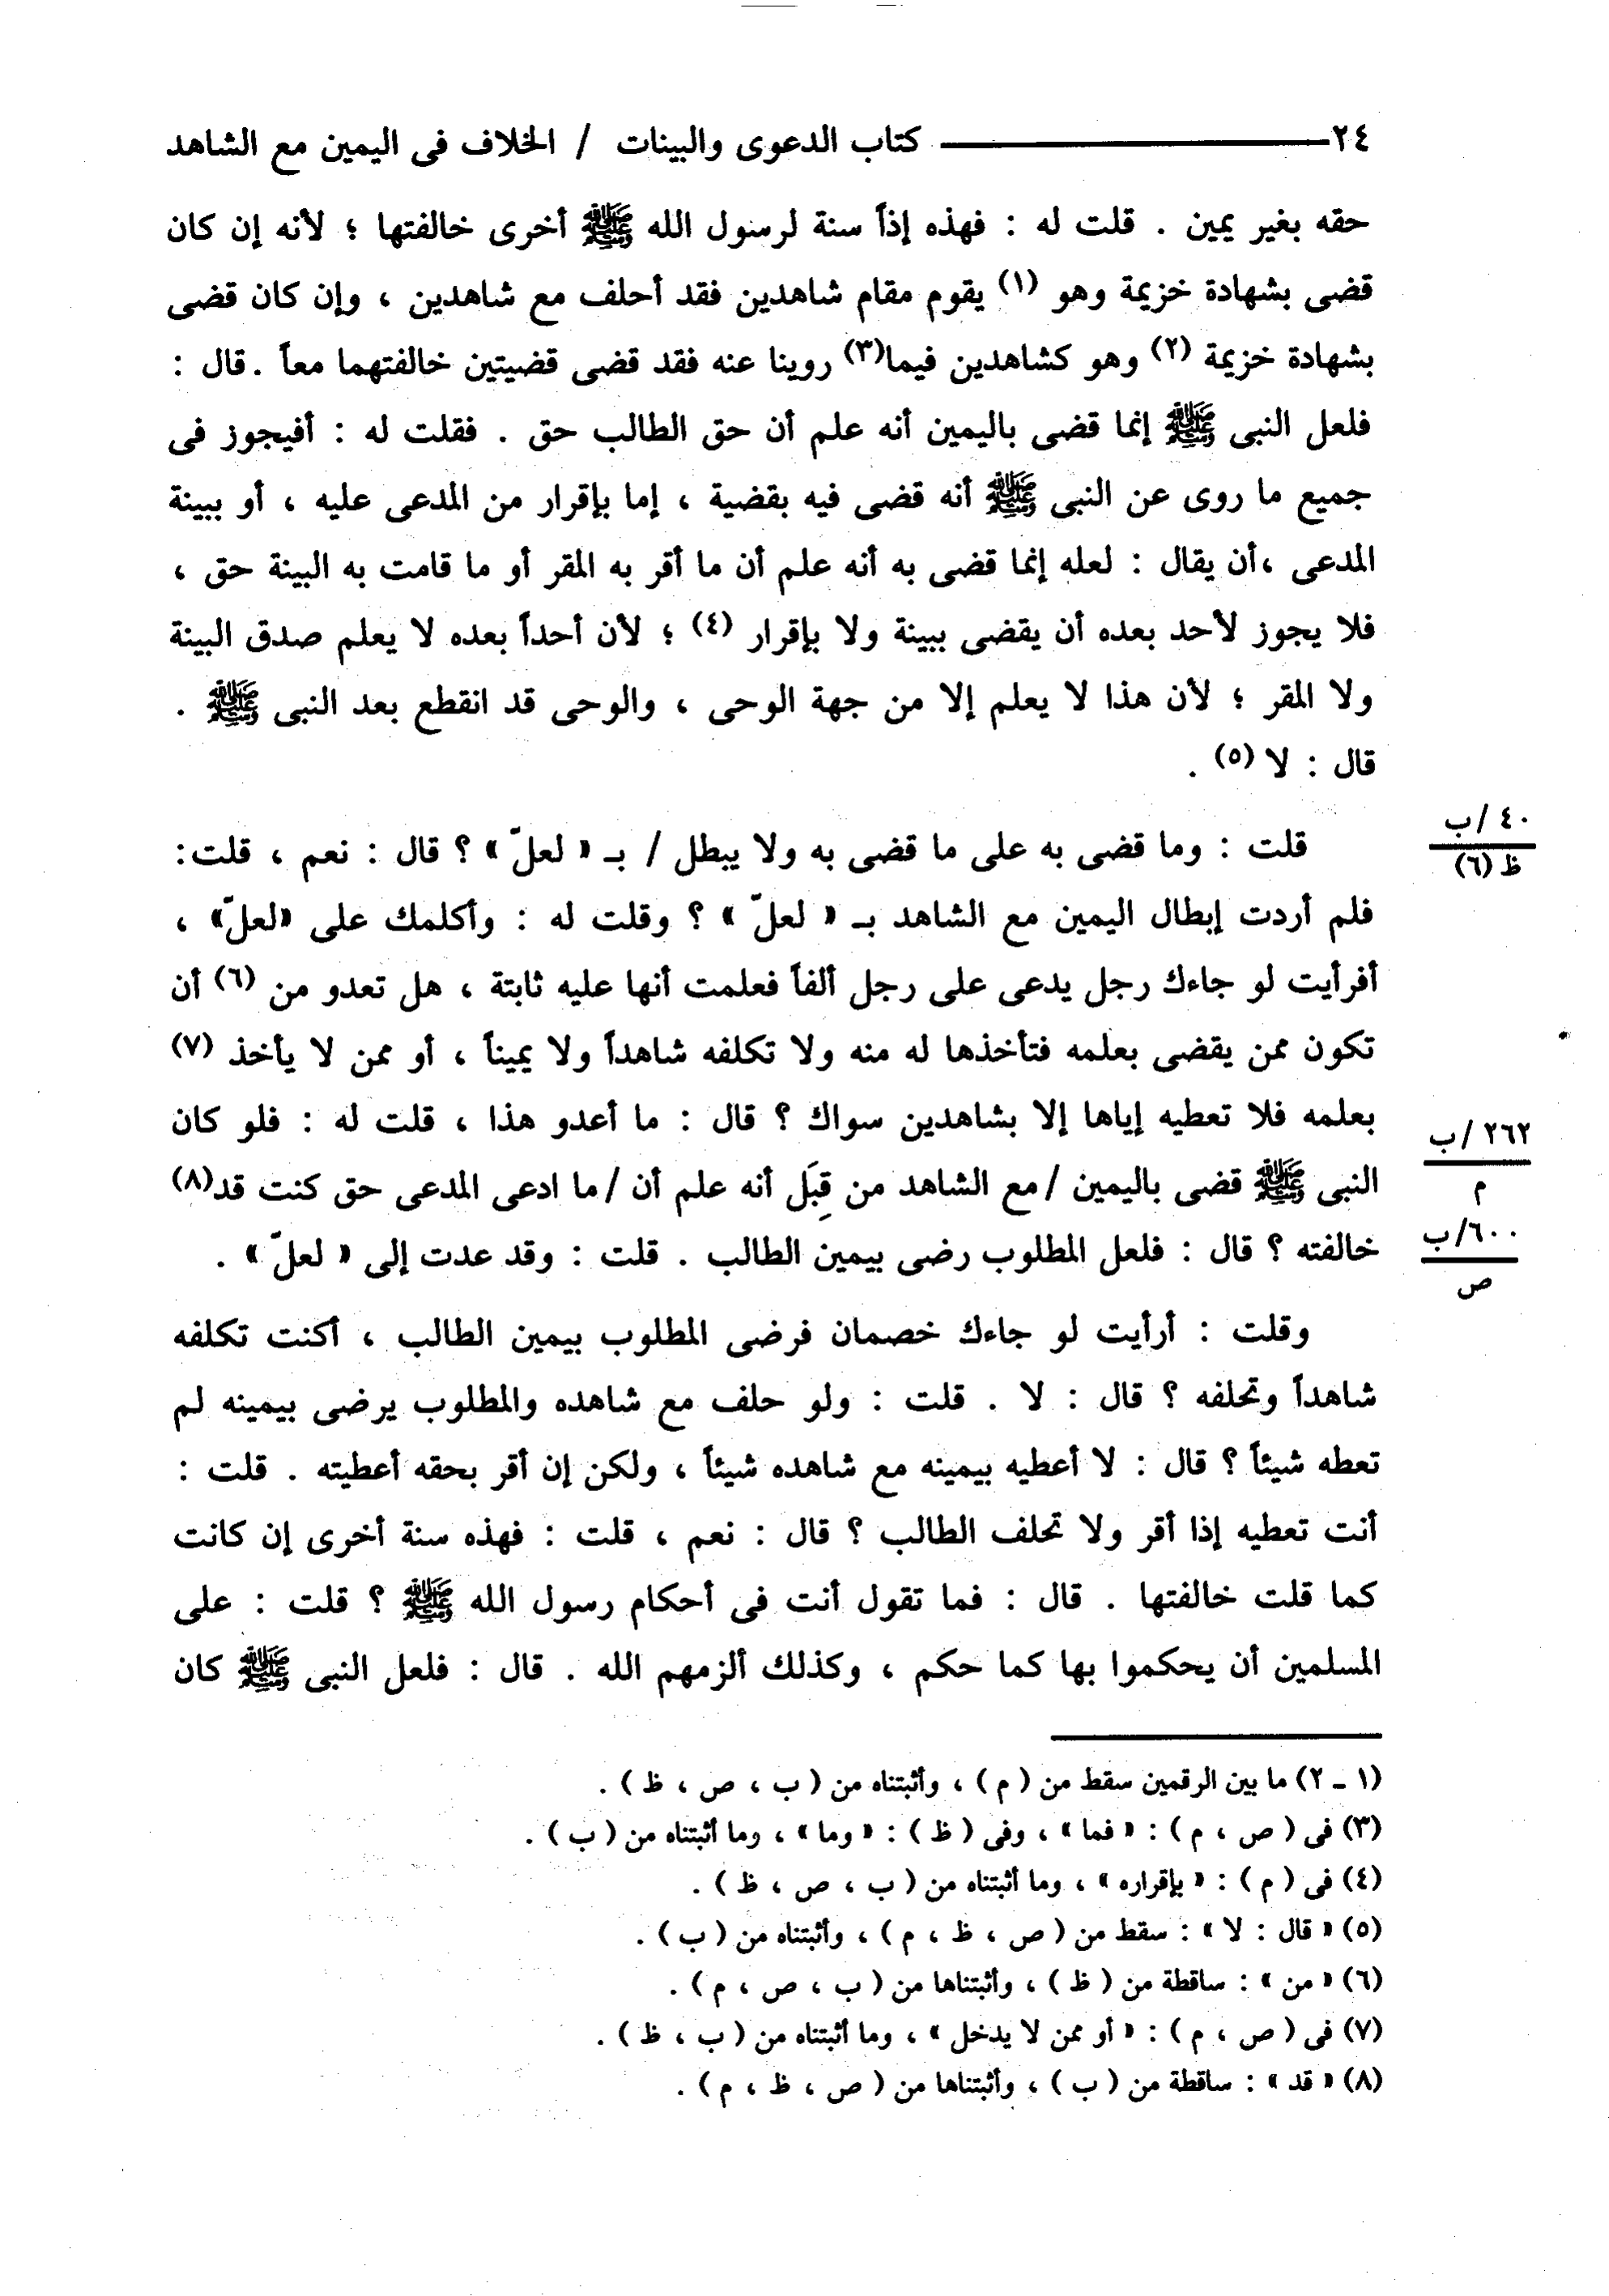 ٢٤ كتاب الدعوى والبينات / الخلاف فى اليمين مع الشاهد
حقه بغير يمين . قلت له : فهذه إذاً سنة لرسول الله ﷺ أخرى خالفتها ؛ لأنه إن كان
قضى بشهادة خزيمة وهو (١) يقوم مقام شاهدين فقد أحلف مع شاهدين ، وإن كان قضى
بشهادة خزيمة (٢) وهو كشاهدين فيما(٣) روينا عنه فقد قضى قضيتين خالفتهما معاً . قال :
فلعل النبى ﷺ إنما قضى باليمين أنه علم أن حق الطالب حق . فقلت له : أفيجوز فى
جميع ما روى عن النبى ﷺ أنه قضى فيه بقضية ، إما بإقرار من المدعى عليه ، أو ببينة
المدعى ،أن يقال : لعله إنما قضى به أنه علم أن ما أقر به المقر أو ما قامت به البينة حق ،
فلا يجوز لأحد بعده أن يقضى ببينة ولا بإقرار (٤) ؛ لأن أحداً بعده لا يعلم صدق البينة
ولا المقر ؛ لأن هذا لا يعلم إلا من جهة الوحى ، والوحى قد انقطع بعد النبى ﷺ .
قال : لا (٥) .
٤٠ /ب
ظ (٦)
قلت : وما قضى به على ما قضى به ولا يبطل / بـ « لعلّ » ؟ قال : نعم ، قلت:
فلم أردت إبطال اليمين مع الشاهد بـ « لعلّ » ؟ وقلت له : وأكلمك على «لعلّ» ،
أفرأيت لو جاءك رجل يدعى على رجل ألفاً فعلمت أنها عليه ثابتة ، هل تعدو من (٦) أن
تكون ممن يقضى بعلمه فتأخذها له منه ولا تكلفه شاهداً ولا يميناً ، أو ممن لا يأخذ (٧)
بعلمه فلا تعطيه إياها إلا بشاهدين سواك ؟ قال : ما أعدو هذا ، قلت له : فلو كان
٢٦٢ /ب
م
النبى ﷺ قضى باليمين /مع الشاهد من قِبَل أنه علم أن /ما ادعى المدعى حق كنت قد(٨)
٦٠٠/ب
ص
خالفته ؟ قال : فلعل المطلوب رضى بيمين الطالب . قلت : وقد عدت إلى « لعلّ » .
وقلت : أرأيت لو جاءك خصمان فرضى المطلوب بيمين الطالب ، أكنت تكلفه
شاهداً وتحلفه ؟ قال : لا . قلت : ولو حلف مع شاهده والمطلوب يرضى بيمينه لم
تعطه شيئاً ؟ قال : لا أعطيه بيمينه مع شاهده شيئاً ، ولكن إن أقر بحقه أعطيته . قلت :
أنت تعطيه إذا أقر ولا تحلف الطالب ؟ قال : نعم ، قلت : فهذه سنة أخرى إن كانت
كما قلت خالفتها . قال : فما تقول أنت فى أحكام رسول الله ﷺ ؟ قلت : على
المسلمين أن يحكموا بها كما حكم ، وكذلك ألزمهم الله . قال : فلعل النبى ﷺ كان
(١ ـ ٢) ما بين الرقمين سقط من ( م ) ، وأثبتناه من ( ب ، ص ، ظ ) .
(٣) فى ( ص ، م ) : « فما » ، وفى ( ظ ) : « وما » ، وما أثبتناه من ( ب ) .
(٤) فى ( م ) : « بإقراره » ، وما أثبتناه من ( ب ، ص ، ظ ) .
(٥) « قال : لا » : سقط من ( ص ، ظ ، م ) ، وأثبتناه من ( ب ) .
(٦) « من » : ساقطة من ( ظ ) ، وأثبتناها من ( ب ، ص ، م ) .
(٧) فى ( ص ، م ) : « أو ممن لا يدخل » ، وما أثبتناه من ( ب ، ظ ) .
(٨) « قد » : ساقطة من ( ب ) ، وأثبتناها من ( ص ، ظ ، م ) .